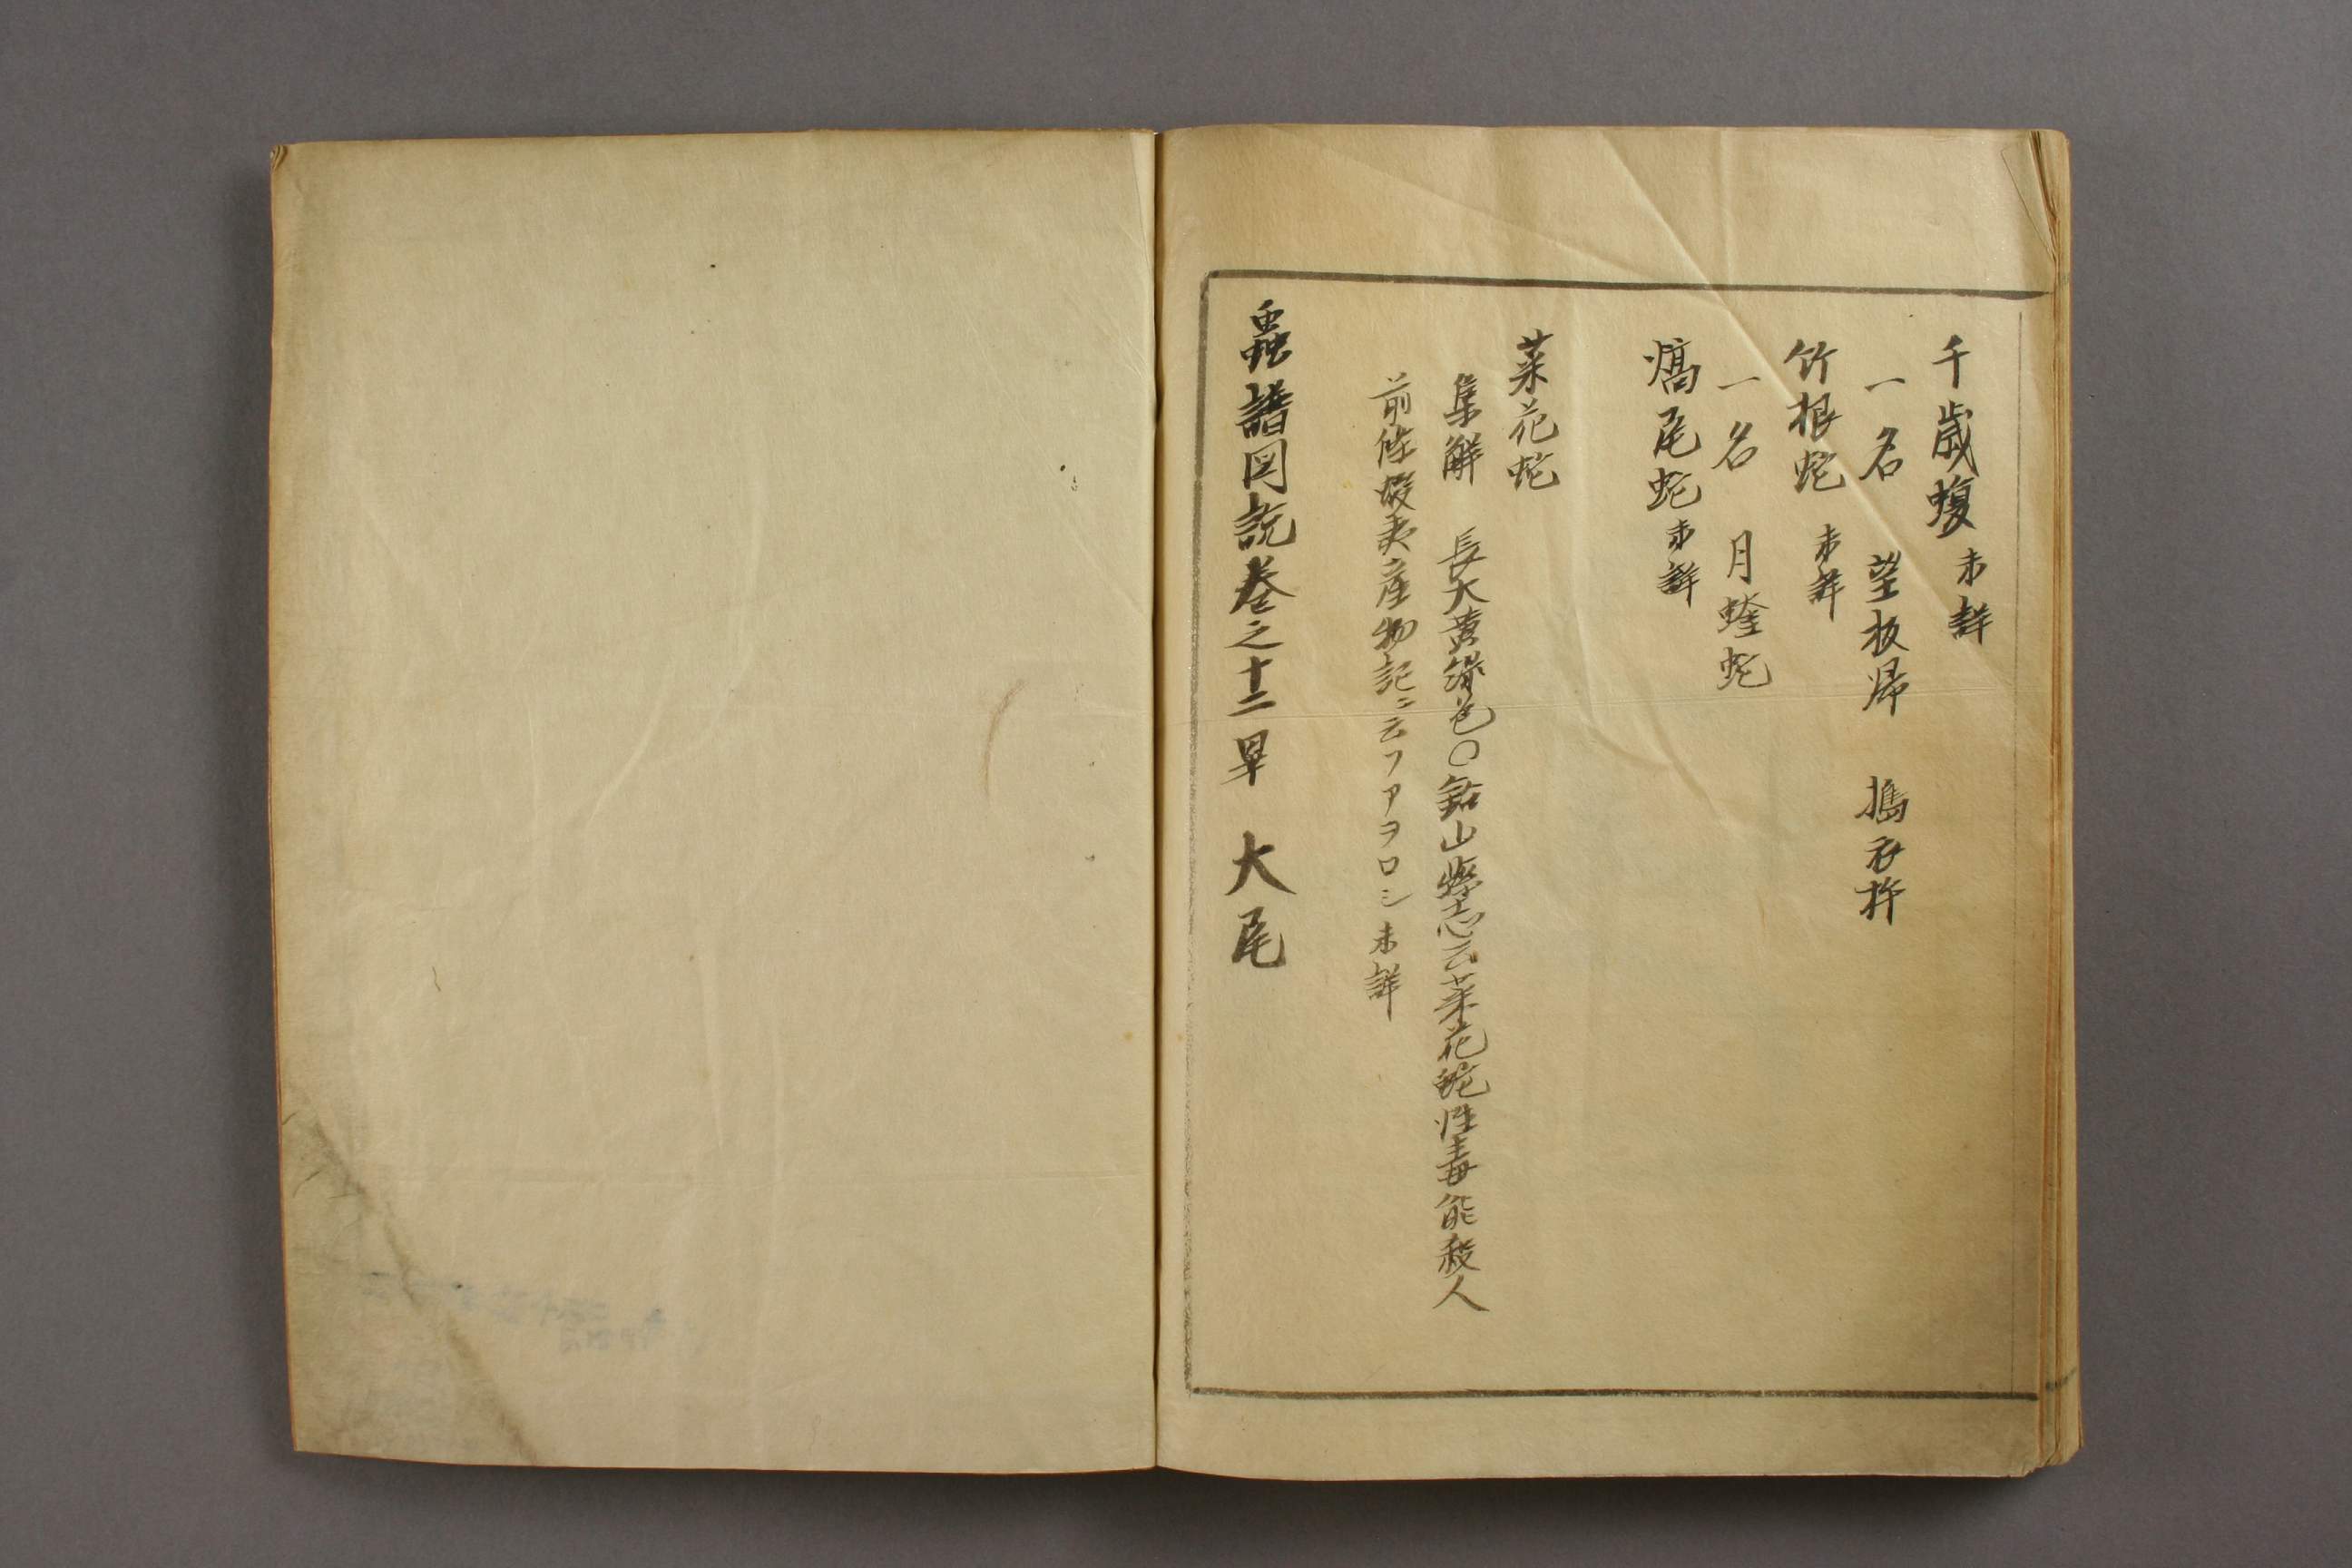 千歳蝮 未詳
一名 望板帰 搗衣杵
竹根蛇 未詳
一名 月蝰蛇
熇尾蛇 未詳
菜花蛇
集解 長大黄緑色〇鉛山縣志云菜花蛇性毒能殺人
前條蝦夷産物記ニ云フアヲロシ未詳
蟲譜図説巻之十二畢 大尾